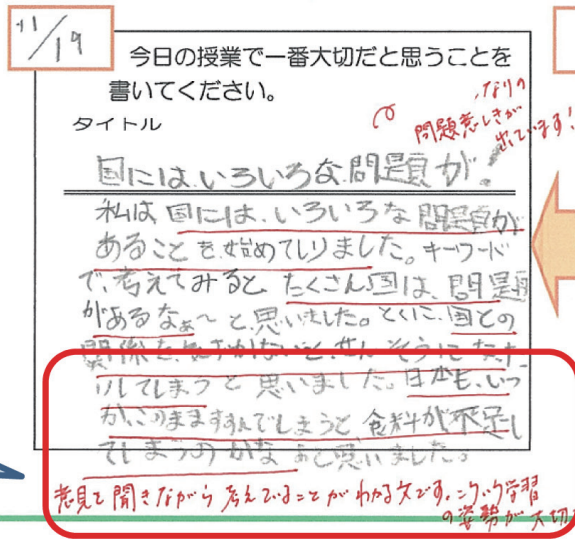 11/19
今日の授業で一番大切だと思うことを
書いてください。
タイトル
なりの
問題意しきが
出ています!
国にはいろいろな問題が!
私は、国には、いろいろな問題が
あることを始めてしりました。キーワード
で、考えてみると、たくさん国は、問題
があるなぁ〜と思いました。とくに、国との
関係を、しないと、せんそうになった
りしてしまうと思いました。日本も、いつ
か、このまますすんでしまうと、食料が不足し
てしまうのかなぁと思いました。
意見を聞きながら考えていることがわかる文です。こういう学習
の姿勢が大切